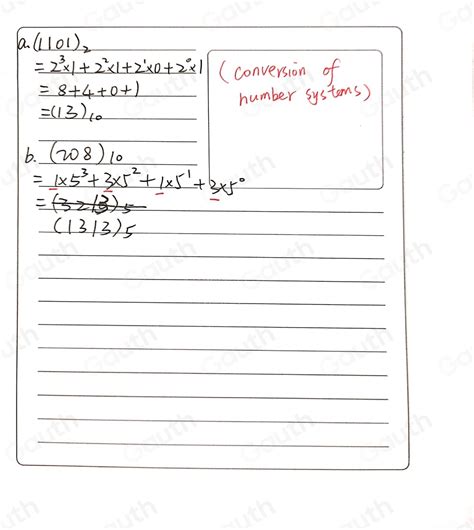 a. (1101)₂
= 2³×1 + 2²×1 + 2¹×0 + 2⁰×1
= 8+4+0+1
= (13)₁₀
(conversion of
number systems)
b. (208)₁₀
= 1×5³ + 3×5² + 1×5¹ + 3×5⁰
= (3213)₅
(1313)₅
Gauth